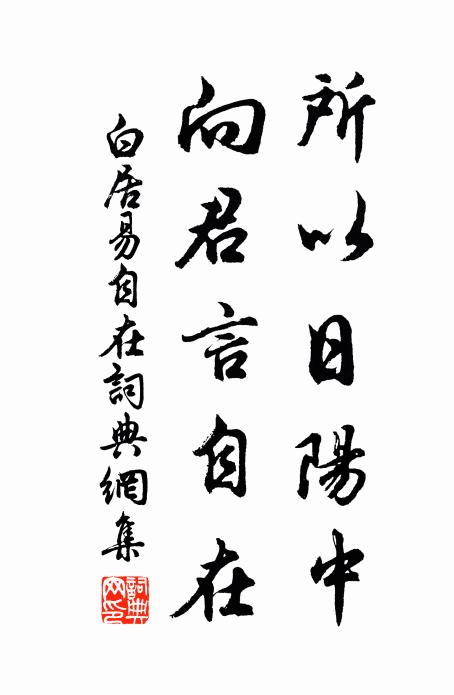 所以日陽中
向君言自在
白居易自在詞典網集
詞典網印